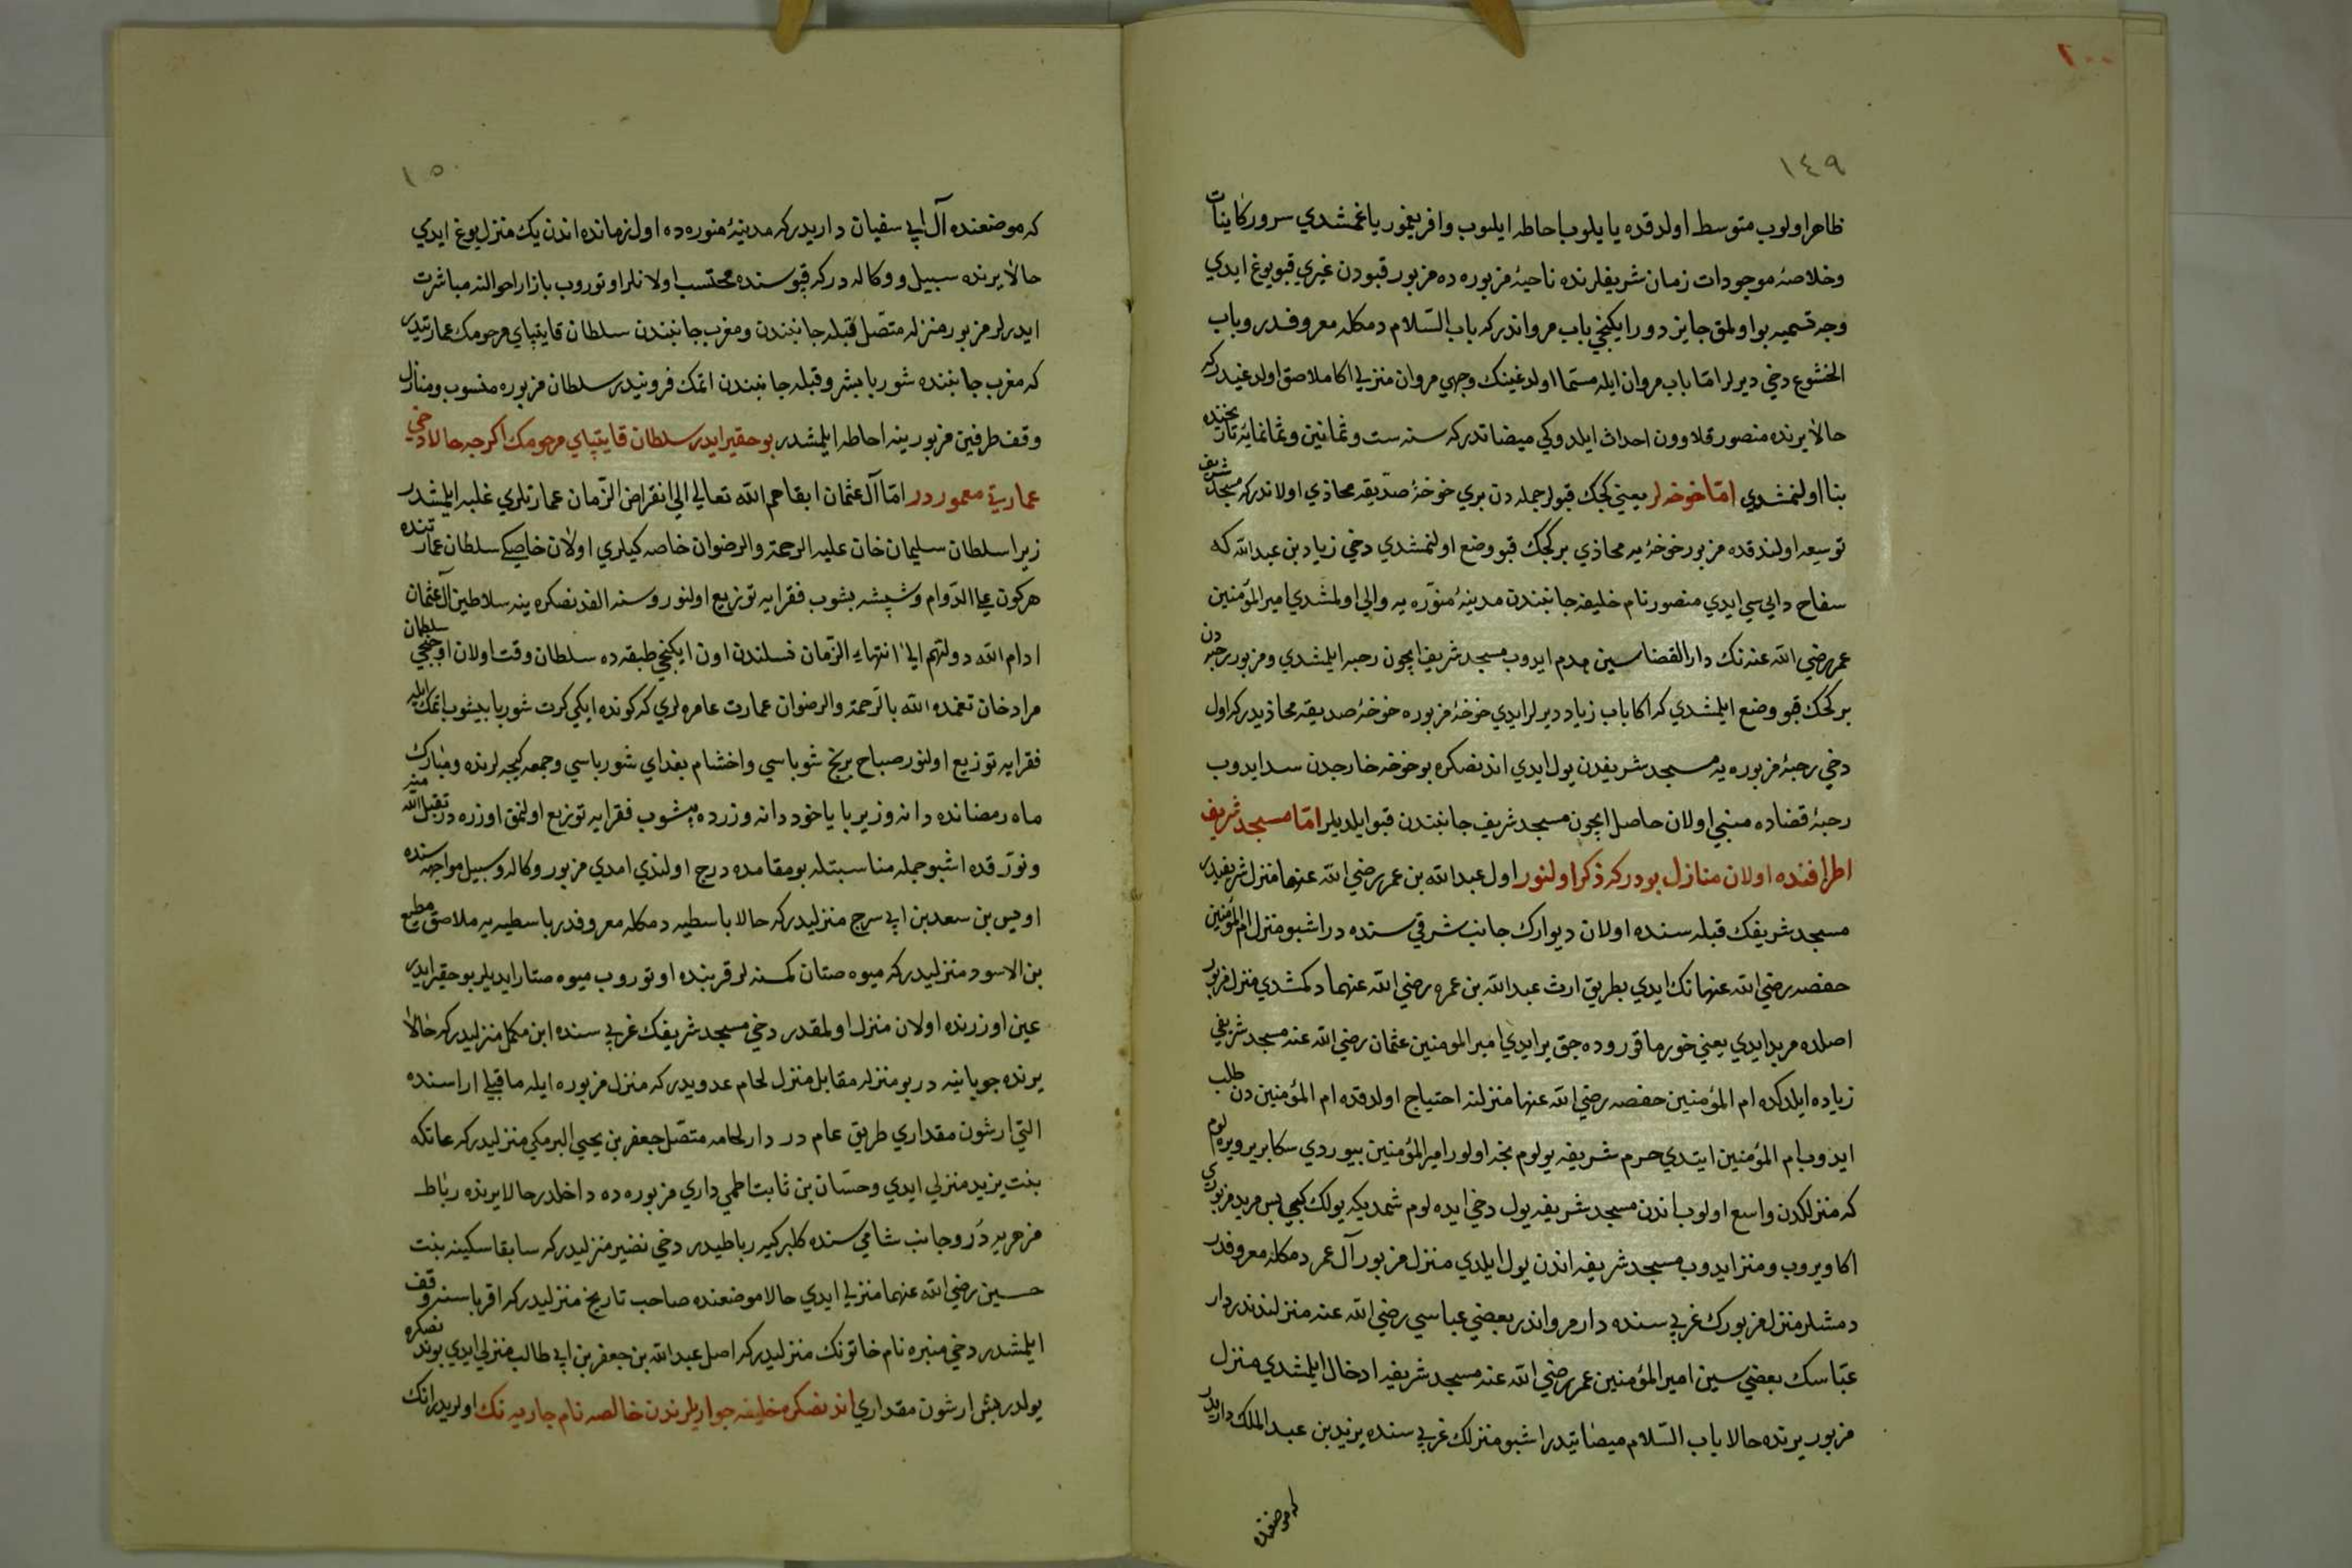 ٢٠٠
١٤٩
ظاهر اولوب متوسط اولدقده يا يلوب احاطه ايلوب وافر يغمور ياغمشدي سرور كاينات
وخلاصهٔ موجودات زمان شريفلرنده ناحيهٔ مزبوره ده مزبور قبودن غيري قبو يوغ ايدي
وجه تسميه بو اولمق جايز دور ايكنجي باب مرواندر كه باب السّلام دمكله معروفدر وباب
الخشوع دخي ديرلر امّا باب مروان ايله مسمّا اولدغينك وجهي مروان منزلي اكا ملاصق اولدغيدر كه
حالا يرنده منصور قلاوون احداث ايلدوكي ميضاتدر كه سنه ست وثمانين وثمانمايهٔ تاريخنده
بنا اولنمشدي امّا خوخه لر يعني كجك قبولر جمله دن بري خوخهٔ صدّيقه محاذي اولاندر كه مسجد شريف
توسيعه اولندقده مزبور خوخهٔ يه محاذي بر كجك قبو وضع اولنمشدي دخي زياد بن عبدالله كه
سفاح داليسي ايدي منصور نام خليفه جانبندن مدينهٔ منوّره يه والي اولمشدي امير المؤمنين
عمر رضي الله عنه نك دار القضاسين هدم ايدوب مسجد شريف ايچون رحبه ايلمشدي ومزبور رحبه دن
بر كجك قبو وضع ايلمشدي كه اكا باب زياد ديرلر ايدي خوخهٔ مزبوره خوخهٔ صديقه محاذيدر كه اول
دخي رحبهٔ مزبوره يه مسجد شريفدن يول ايدي اندنصكره بو خوخه خارجدن سد ايدوب
رحبهٔ قضاده مبني اولان حاصل ايچون مسجد شريف جانبندن قبو ايلديلر امّا مسجد شريف
اطرافنده اولان منازل بودر كه ذكر اولنور اول عبدالله بن عمر رضي الله عنهما منزل شريفيدر
مسجد شريفك قبله سنده اولان ديوارك جانب شرقي سنده در اشبو منزل ام المؤمنين
حفصه رضي الله عنهانك ايدي بطريق ارث عبدالله بن عمره رضي الله عنهما دكمشدي منزل مزبور
اصلده مربد ايدي يعني خورما قوروده جق ير ايدي امير المومنين عثمان رضي الله عنه مسجد شريفي
زياده ايلدكده ام المؤمنين حفصه رضي الله عنها منزلنه احتياج اولدقده ام المؤمنين دن طلب
ايدوب ام المؤمنين ايتدي حرم شريفه يولوم نجه اولور امير المؤمنين بيوردي سكا بر ير ويره لوم
كه منزلكدن واسع اولوب اندن مسجد شريفه يول دخي ايده لوم شمديكه يولك كبي پس مربد مزبوري
اكا ويروب ومنزل ايدوب مسجد شريفه اندن يول ايلدي منزل مزبور آل عمر دمكله معروفدر
دمشلر منزل مزبورك غربي سنده دار مرواندر بعضي عباسي رضي الله عنه منزلندندر دار
عبّاسك بعضي سين امير المؤمنين عمر رضي الله عنه مسجد شريفه ادخال ايلمشدي منزل
مزبور يرنده حالا باب السّلام ميضاتيدر اشبو منزلك غربي سنده يزيد بن عبد الملك داريدر
كه موضعنده
١٥٠
كه موضعنده آل ابي سفيان داريدر كه مدينهٔ منوره ده اول زمانده اندن يك منزل يوغ ايدي
حالا يرنده سبيل ووكاله در كه قپوسنده محتسب اولانلر اوتوروب بازار احوالنه مباشرت
ايدرلر مزبور منزله متصّل قبله جانبندن ومغرب جانبندن سلطان قايتباي مرحومك عمارتيدر
كه مغرب جانبنده شوربا بشر وقبله جانبندن اتمك فرونيدر سلطان مزبوره منسوب ومنازل
وقف طرفين مزبورينه احاطه ايلمشدر بو حقير ايدر سلطان قايتباي مرحومك اكرجه حالا دخي
عمارتي معموردر امّا آل عثمان ابقاهم الله تعالي الي انقراض الزّمان عمارتلري غلبه ايلمشدر
زيرا سلطان سليمان خان عليه الرحمة والرضوان خاصه كيلري اولان خاصكي سلطان عمارتنده
هركون علي الدّوام وشپشه بشوب فقرايه توزيع اولنور وسنه الفدنصكره ينه سلاطين آل عثمان
ادام الله دولتهم الي انتهاء الزّمان نسلندن اون ايكنجي طبقه ده سلطان وقت اولان اوچنجي سلطان
مراد خان تغمده الله بالرّحمة والرضوان عمارت عامره لري كه كونده ايكي كرت شوربا بيشوب اتمك ايله
فقرايه توزيع اولنور صباح برنج شورباسي واخشام بغداي شورباسي وجمعه كيجه لرنده ومبارك
ماه رمضانده دانه وزيربا ياخود دانه وزرده پيشوب فقرايه توزيع اولنمق اوزره در تقبل الله منه
ونوّر قده اشبو جمله مناسبتله بو مقامده درج اولندي امدي مزبور وكاله وسبيل مواجهه سنده
اويس بن سعد بن ابي سرح منزليدر كه حالا باسطيه دمكله معروفدر باسطيه يه ملاصق مطيع
بن الاسود منزليدر كه ميوه صتان كمسنه لر قربنده اوتوروب ميوه صتار ايديلر بو حقير ايدر
عين اوزرنده اولان منزل اولمقدر دخي مسجد شريفك غربي سنده ابن مكمل منزليدر كه حالا
يرنده جوبانيه در بو منزله مقابل منزل لحام عدويدر كه منزل مزبوره ايله ماقبلي اراسنده
التي ارشون مقداري طريق عام در دار لحامه متصّل جعفر بن يحيي البرمكي منزليدر كه عاتكه
بنت يزيد منزلي ايدي وحسّان بن ثابت اطمي داري مزبوره ده داخلدر حالا يرنده رباط
مزهريه در وجانب شامي سنده كلبركيه رباطيدر دخي نضير منزليدر كه سابقا سكينه بنت
حسين رضي الله عنهما منزلي ايدي حالا موضعنده صاحب تاريخ منزليدر كه اقرباسنه وقف
ايلمشدر دخي منيره نام خاتونك منزليدر كه اصل عبدالله بن جعفر بن ابي طالب منزلي ايدي بوندنصكره
يولدر بش ارشون مقداري اندنصكره خليفه جواريلرندن خالصه نام جاريه نك اولريدر انك